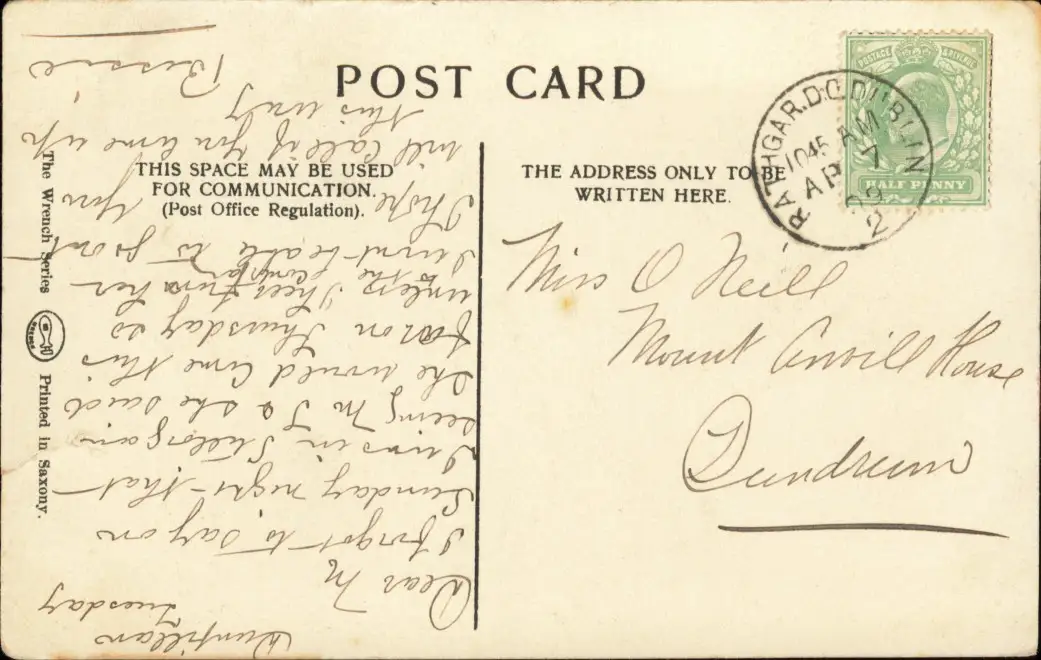 POST CARD
THIS SPACE MAY BE USED
FOR COMMUNICATION.
(Post Office Regulation).
THE ADDRESS ONLY TO BE
WRITTEN HERE.
The Wrench Series
Printed in Saxony.
POSTAGE & REVENUE
HALF PENNY
RATHGAR.D.O.DUBLIN
1045 AM
AP 7
09
2
Miss O Neill
Mount Anvill House
Dundrum
Tuesday
Dear M
I forgot to say on
Sunday night that
I was in Stillorgan
seeing M J & she said
she would come this
far on Thursday so
unless she turns her
I wont be able to go out
I hope you
will call if you come up
this way
Bessie